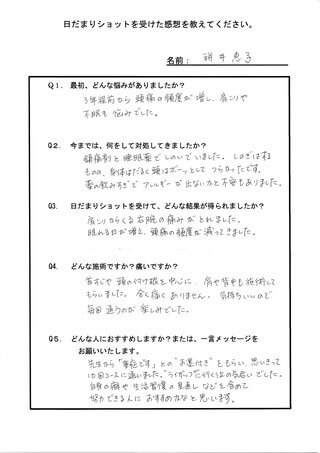 日だまりショットを受けた感想を教えてください。
名前： 井 恵子
Q1. 最初、どんな悩みがありましたか？
3年程前から 頭痛の頻度が増し、肩こりや
不眠も悩みでした。
Q2. 今までは、何をして対処してきましたか？
鎮痛剤と睡眠薬でしのいでいました。しのぎはする
ものの、身体はだるく頭はボーッとして つらかったです。
薬の飲みすぎで アレルギーが出ないかと不安もありました。
Q3. 日だまりショットを受けて、どんな結果が得られましたか？
肩こりからくる右腕の痛みがとれました。
眠れる日が増え、頭痛の頻度が減ってきました。
Q4. どんな施術ですか？痛いですか？
首すじや 頭の付け根を中心に、肩や背中も施術して
もらいました。全く痛くありません。気持ちいいので
毎回 通うのが楽しみでした。
Q5. どんな人におすすめしますか？または、一言メッセージを
お願いいたします。
先生から「重症です」との"お墨付き"をもらい、思いきって
10回コースに通いました。
自身の癖や 生活習慣の見直しなどを含めて
努力できる人に おすすめかなと思います。